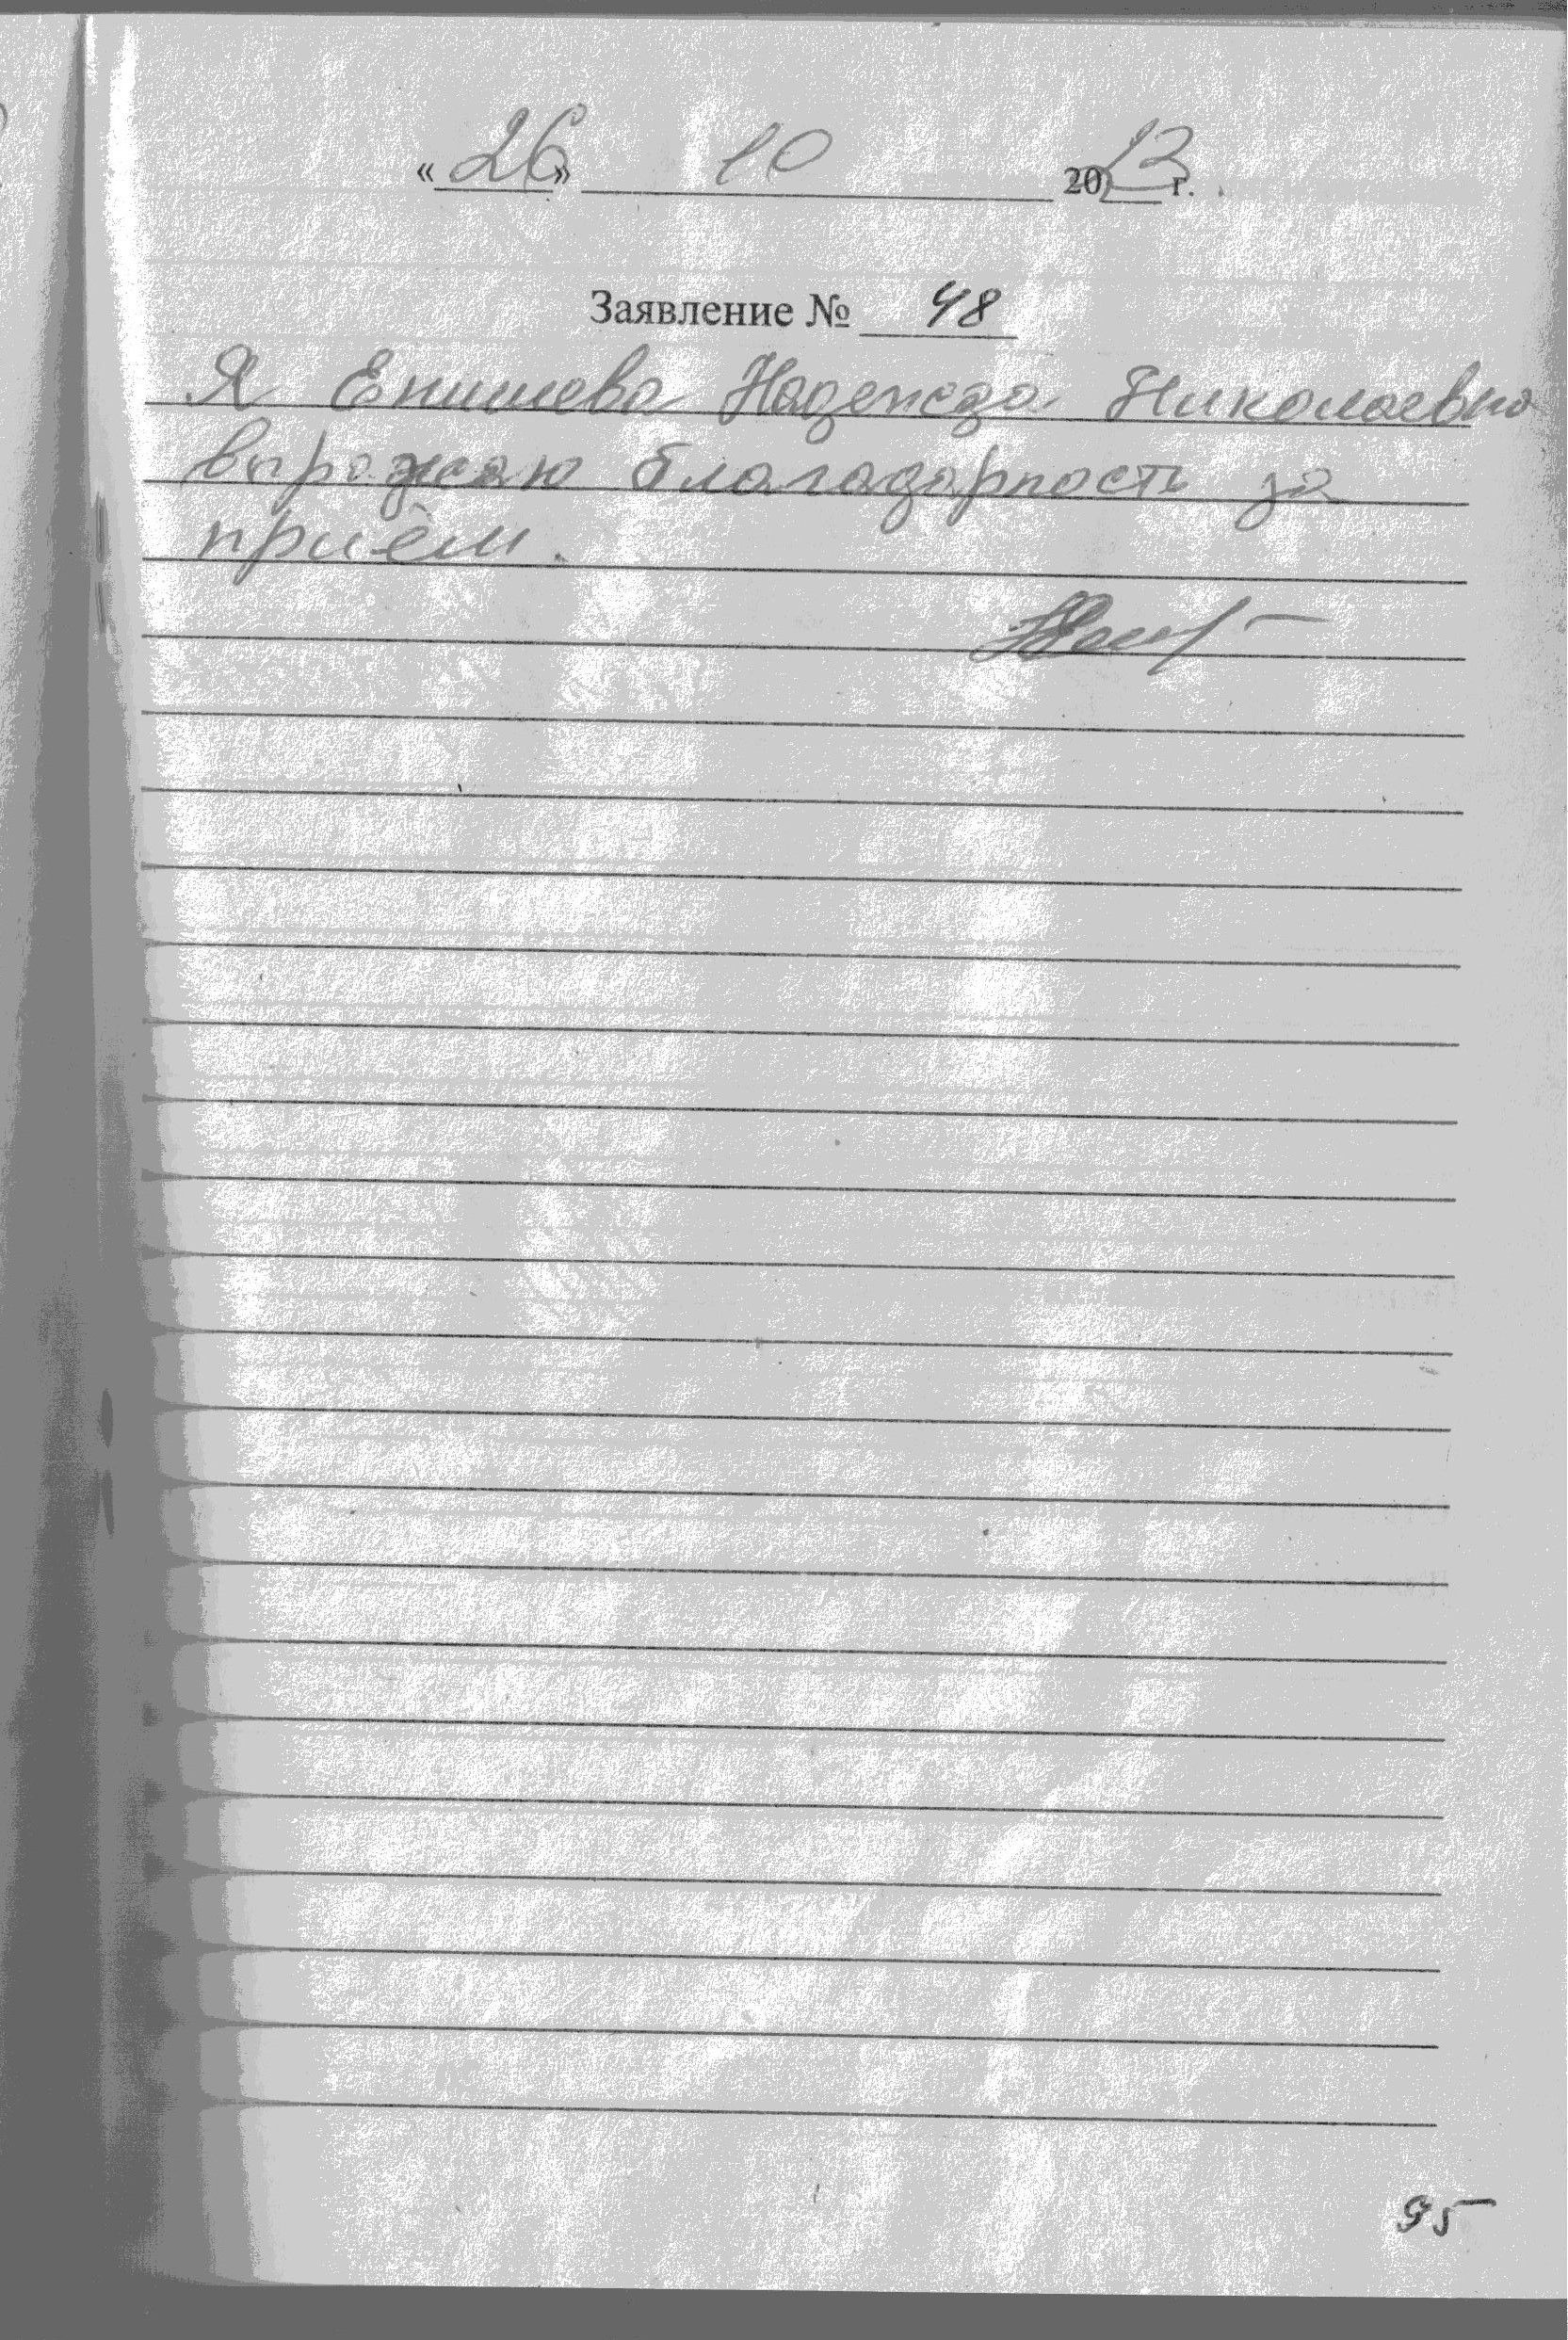 «26» 10 2013 г.
Заявление № 48
Я Енишева Надежда Николаевна
выражаю благадарность за
приём.
95